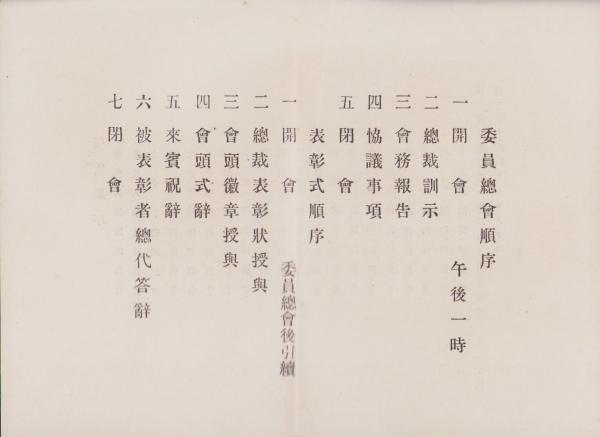 委員總會順序
一 開會 午後一時
二 總裁訓示
三 會務報告
四 恊議事項
五 閉會
表彰式順序
一 開會 委員總會後引續
二 總裁表彰狀授與
三 會頭徽章授與
四 會頭式辭
五 來賓祝辭
六 被表彰者總代答辭
七 閉會